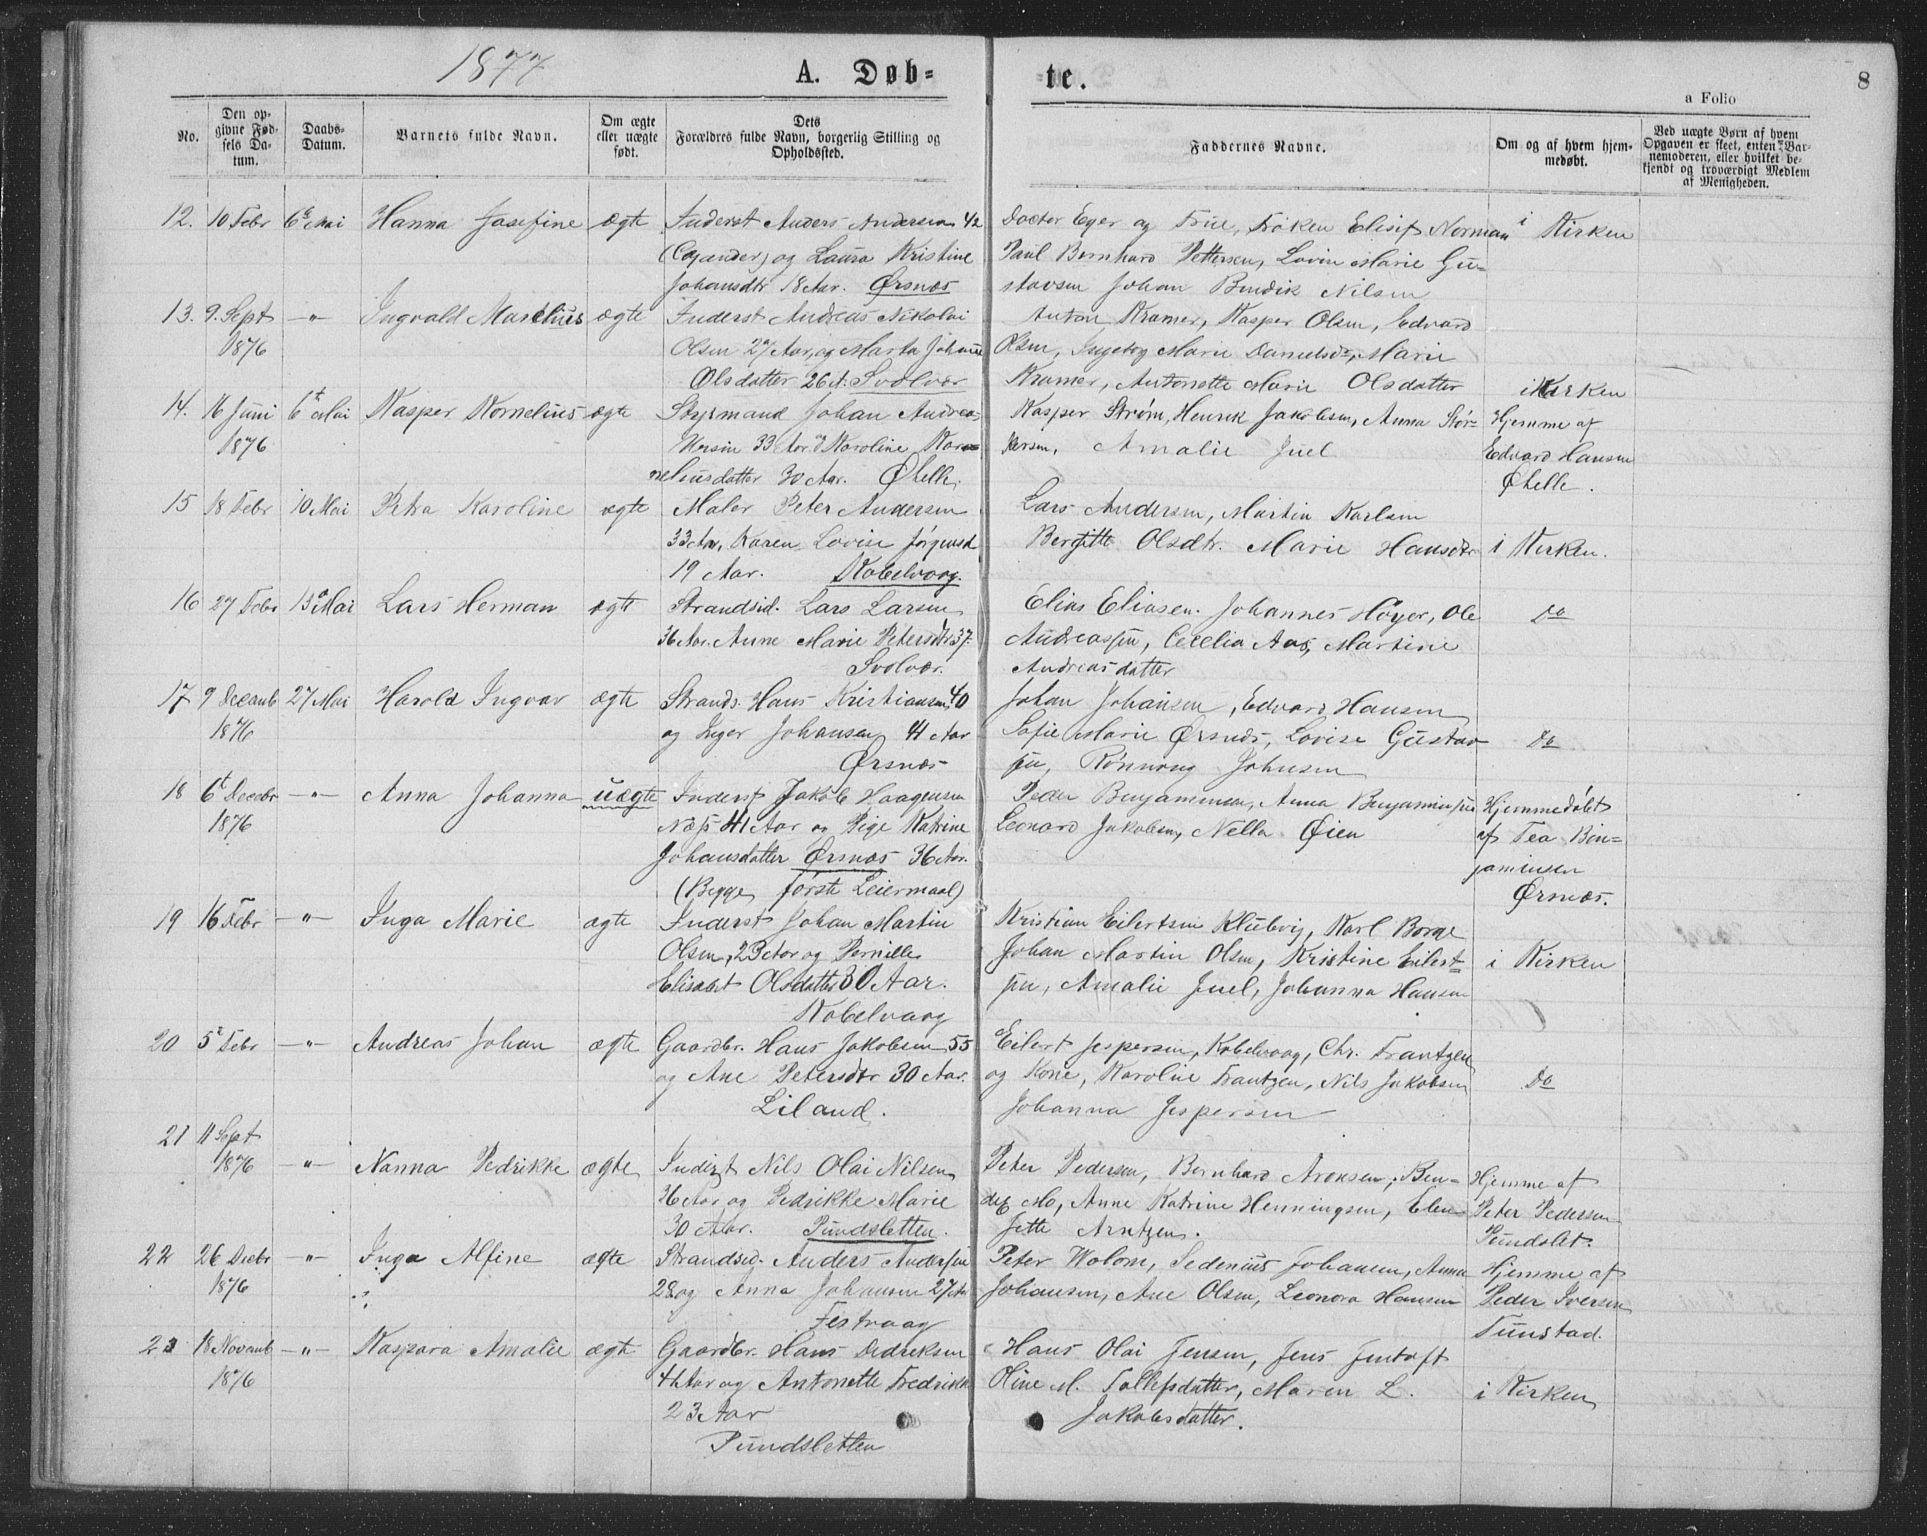 1877
A. Døb-
te.
8
a Folio
No.
Den op-
givne Fød-
sels Da-
tum.
Daabs-
Datum.
Barnets fulde Navn.
Om ægte
eller uægte
født.
Dets
Forældres fulde Navn, borgerlig Stilling og
Opholdssted.
Faddernes Navne.
Om og af hvem hjem-
medøbt.
Ved uægte Børn af hvem
Opgaven er skeet, enten Bar-
nemoderen, eller hvilket be-
kjendt og troværdigt Medlem
af Menigheden.
12. 10 Febr 6te Mai Hanna Josefine ægte Inderst Anders Andersen 42
og Laura Kristine
Johansdtr 18 Aar. Ørsnæs
Doctor Eger og Frue, Frøken Elisif Norman i Kirken
Paul Bernhard Pettersen, Lovin Marie Gu-
stavsen Johan Bendik Nilsen
13. 9. Sept -"- Ingvald Marelius ægte Inderst Andreas Nikolai
1876 Olsen 27 Aar, og Marta Johanne
Olsdatter 26 A. Svolvær
Anton Kramer, Kasper Olsen, Edvard
Olsen, Ingeborg Marie Danielsdr, Marie
Kramer, Antonette Marie Olsdatter i Kirken
14. 16 Juni 6te Mai Kasper Kornelius ægte Styrmand Johan Andrea-
1876 33 Aar og Karoline Kor-
neliusdatter 30 Aar. Øhelle.
Kasper Strøm, Henrik Jakobsen, Anna Stør- Hjemme af
kersen, Amalie Juel Edvard Hansen
Øhelle.
15 18 Febr 10 Mai Petra Karoline ægte Maler Peter Andersen
33 Aar, Karen Lovise Jørgensd
19 Aar. Kabelvaag.
Lars Andersen, Martin Karlsen
Bergitte Olsdtr. Marie Hansdtr i Kirken.
16 27 Febr 13de Mai Lars Herman ægte Strandsid. Lars Larsen
36 Aar. Anne Marie Petersdtr 37.
Svolvær.
Elias Eliasen. Johannes Høyer, Ole Do
Andreassen, Cecelia Aas, Martine
Andreasdatter
17 9 Decemb 27 Mai Harold Ingvar ægte Strands. Hans Kristiansen 40
1876 og Inger Johansen 41 Aar
Ørsnæs
Johan Johansen, Edvard Hansen
Sofie Marie Ørsnæs, Lovise Gustav Do
sen, Rønnaug Johnsen
18 6t Decebr -"- Anna Johanna uægte Inderst Jakob Haagensen
1876 Næss 41 Aar og Pige Katrine
Johansdatter Ørsnæs 36 Aar.
(Begge første Leiermaal)
Peder Benjaminsen, Anna Benjaminsen Hjemmedøbt
Leonard Jakobsen, Nella Øien af Tea Ben-
jaminsen
Ørsnæs.
19 16 Febr -"- Inga Marie ægte Inderst Johan Martin
Olsen, 23 Aar og Pernille
Elisabet Olsdatter 30 Aar.
Kabelvaag
Kristian Eilertsen Klubvig, Karl Borge
Johan Martin Olsen, Kristine Eilert- i Kirken
sen, Amalie Juel, Johanna Hansen
20 5te Febr -"- Andreas Johan ægte Gaardbr. Hans Jakobsen 55
og Ane Petersdtr 30 Aar.
Liland.
Eilert Jespersen, Kabelvaag, Chr. Frantzen
og Kone, Karoline Frantzen, Nils Jakobsen Do
Johanna Jespersen
21 11 Sept
1876 -"- Nanna Pedrikke ægte Inderst Nils Olai Nilsen
36 Aar og Pedrikke Marie
30 Aar. Pundsletten.
Peter Pedersen, Bernhard Aronsen, Ben- Hjemme af
dix Mo, Anne Katrine Henningsen, Elen- Peter Pedersen
Jette Arntzen. Pundslet.
22 26 Decbr -"- Inga Alfine ægte Strandsid. Anders Andersen
1876 28 og Anna Johansen 27 Aar
Festvaag
Peter Holom, Sedenius Johansen, Anna Hjemme af
Johansen, Ane Olsen, Leonora Hansen Peder Iversen
Tunstad.
23 18 Novemb -"- Kaspara Amalie ægte Gaardbr. Hans Didriksen
1876 44 Aar og Antonette Fredrikk
23 Aar
Pundsletten
Hans Olai Jensen, Jens Jentoft
Oline M. Tollefsdatter, Maren L. i Kirken
Jakobsdatter.